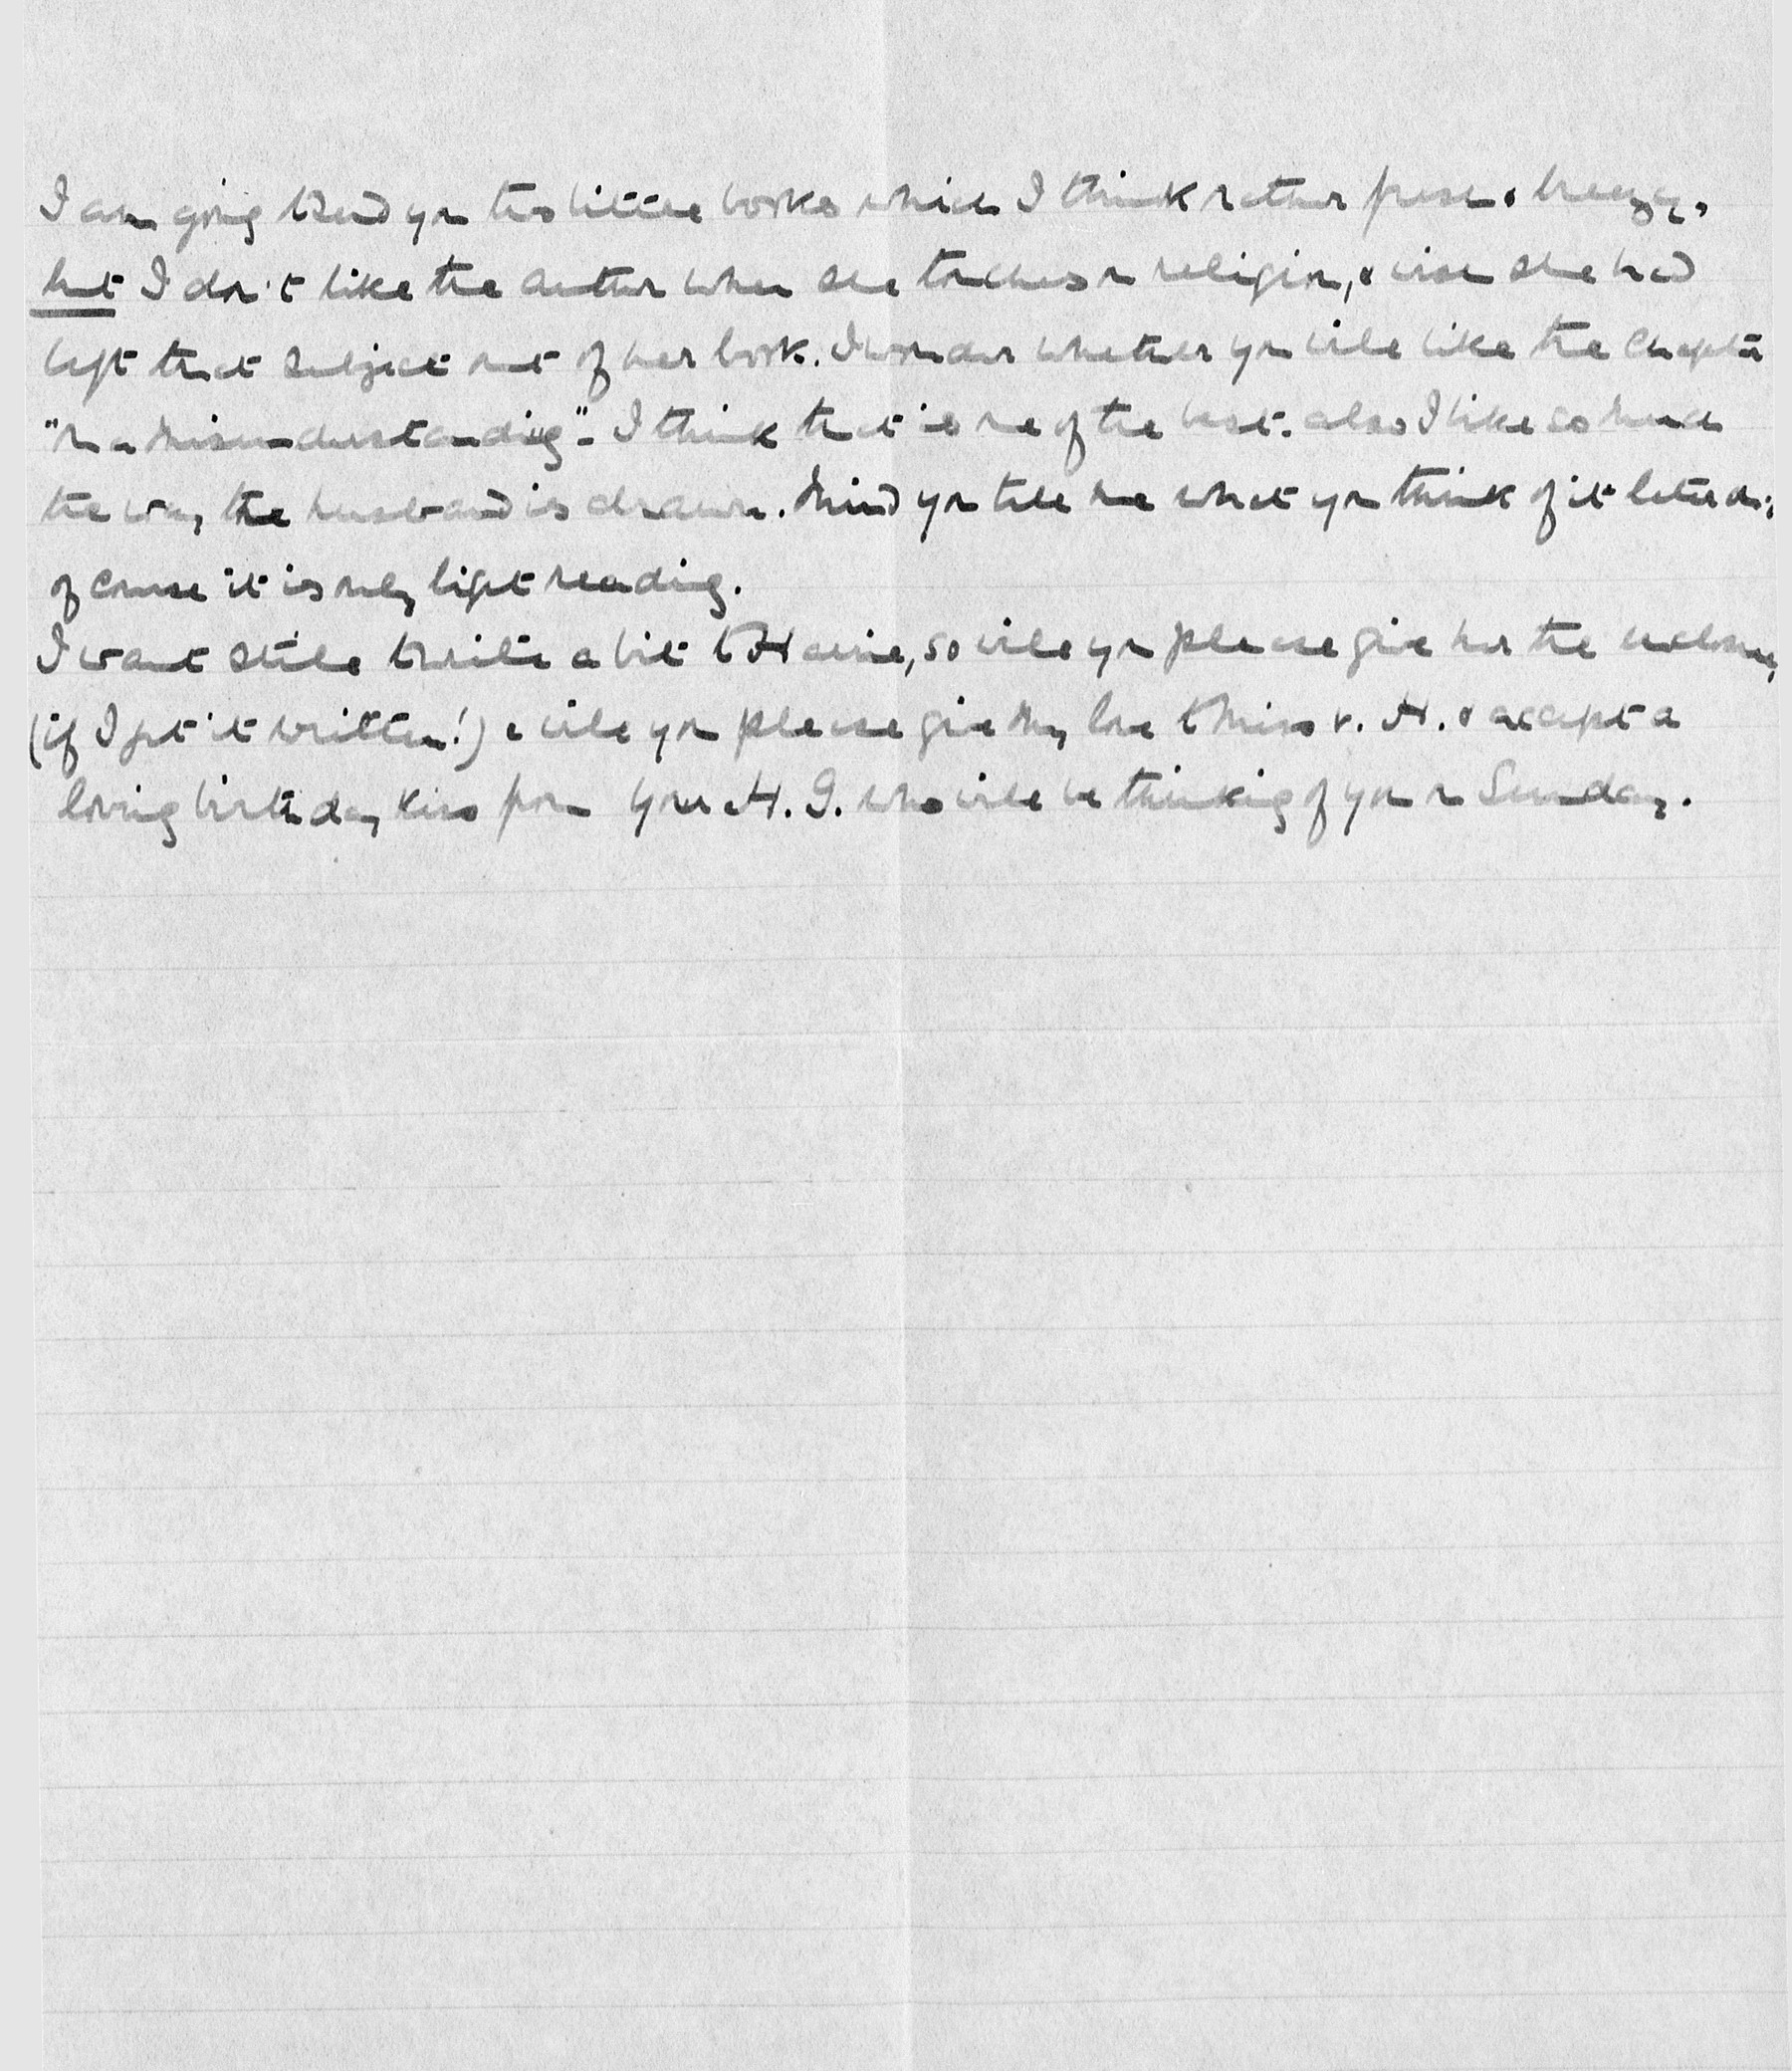 I am going to send you two little books which I think rather fresh & breezy,
but I don't like the author when she touches on religion, & wish she had
left that subject out of her book. I wonder whether you will like the chapter
"On a Misunderstanding" - I think that is one of the best. also I like so much
the way the husband is drawn. Mind you tell me what you think of it later on;
of course it is only light reading.
I want still to write a bit to so will you please give her the enclosure,
(if I get it written!) & will you please give my love to Miss v. H. & accept a
loving birthday kiss from your H. G. who will be thinking of you on Sunday.